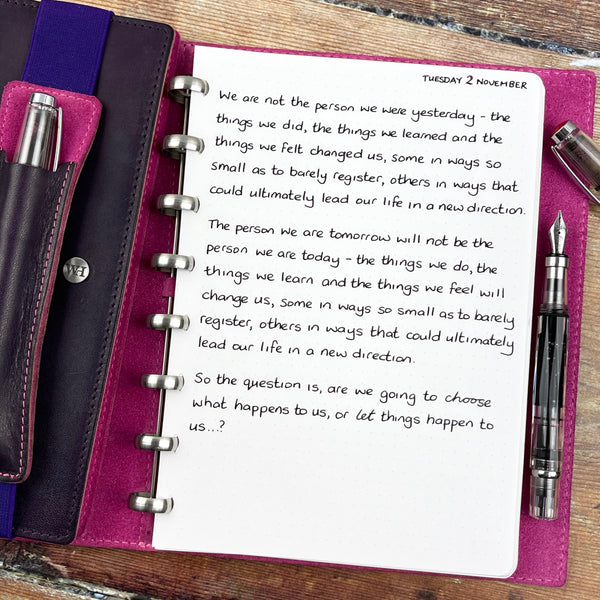 TUESDAY 2 NOVEMBER
We are not the person we were yesterday - the
things we did, the things we learned and the
things we felt changed us, some in ways so
small as to barely register, others in ways that
could ultimately lead our life in a new direction.
The person we are tomorrow will not be the
person we are today - the things we do, the
things we learn and the things we feel will
change us, some in ways so small as to barely
register, others in ways that could ultimately
lead our life in a new direction.
So the question is, are we going to choose
what happens to us, or let things happen to
us...?